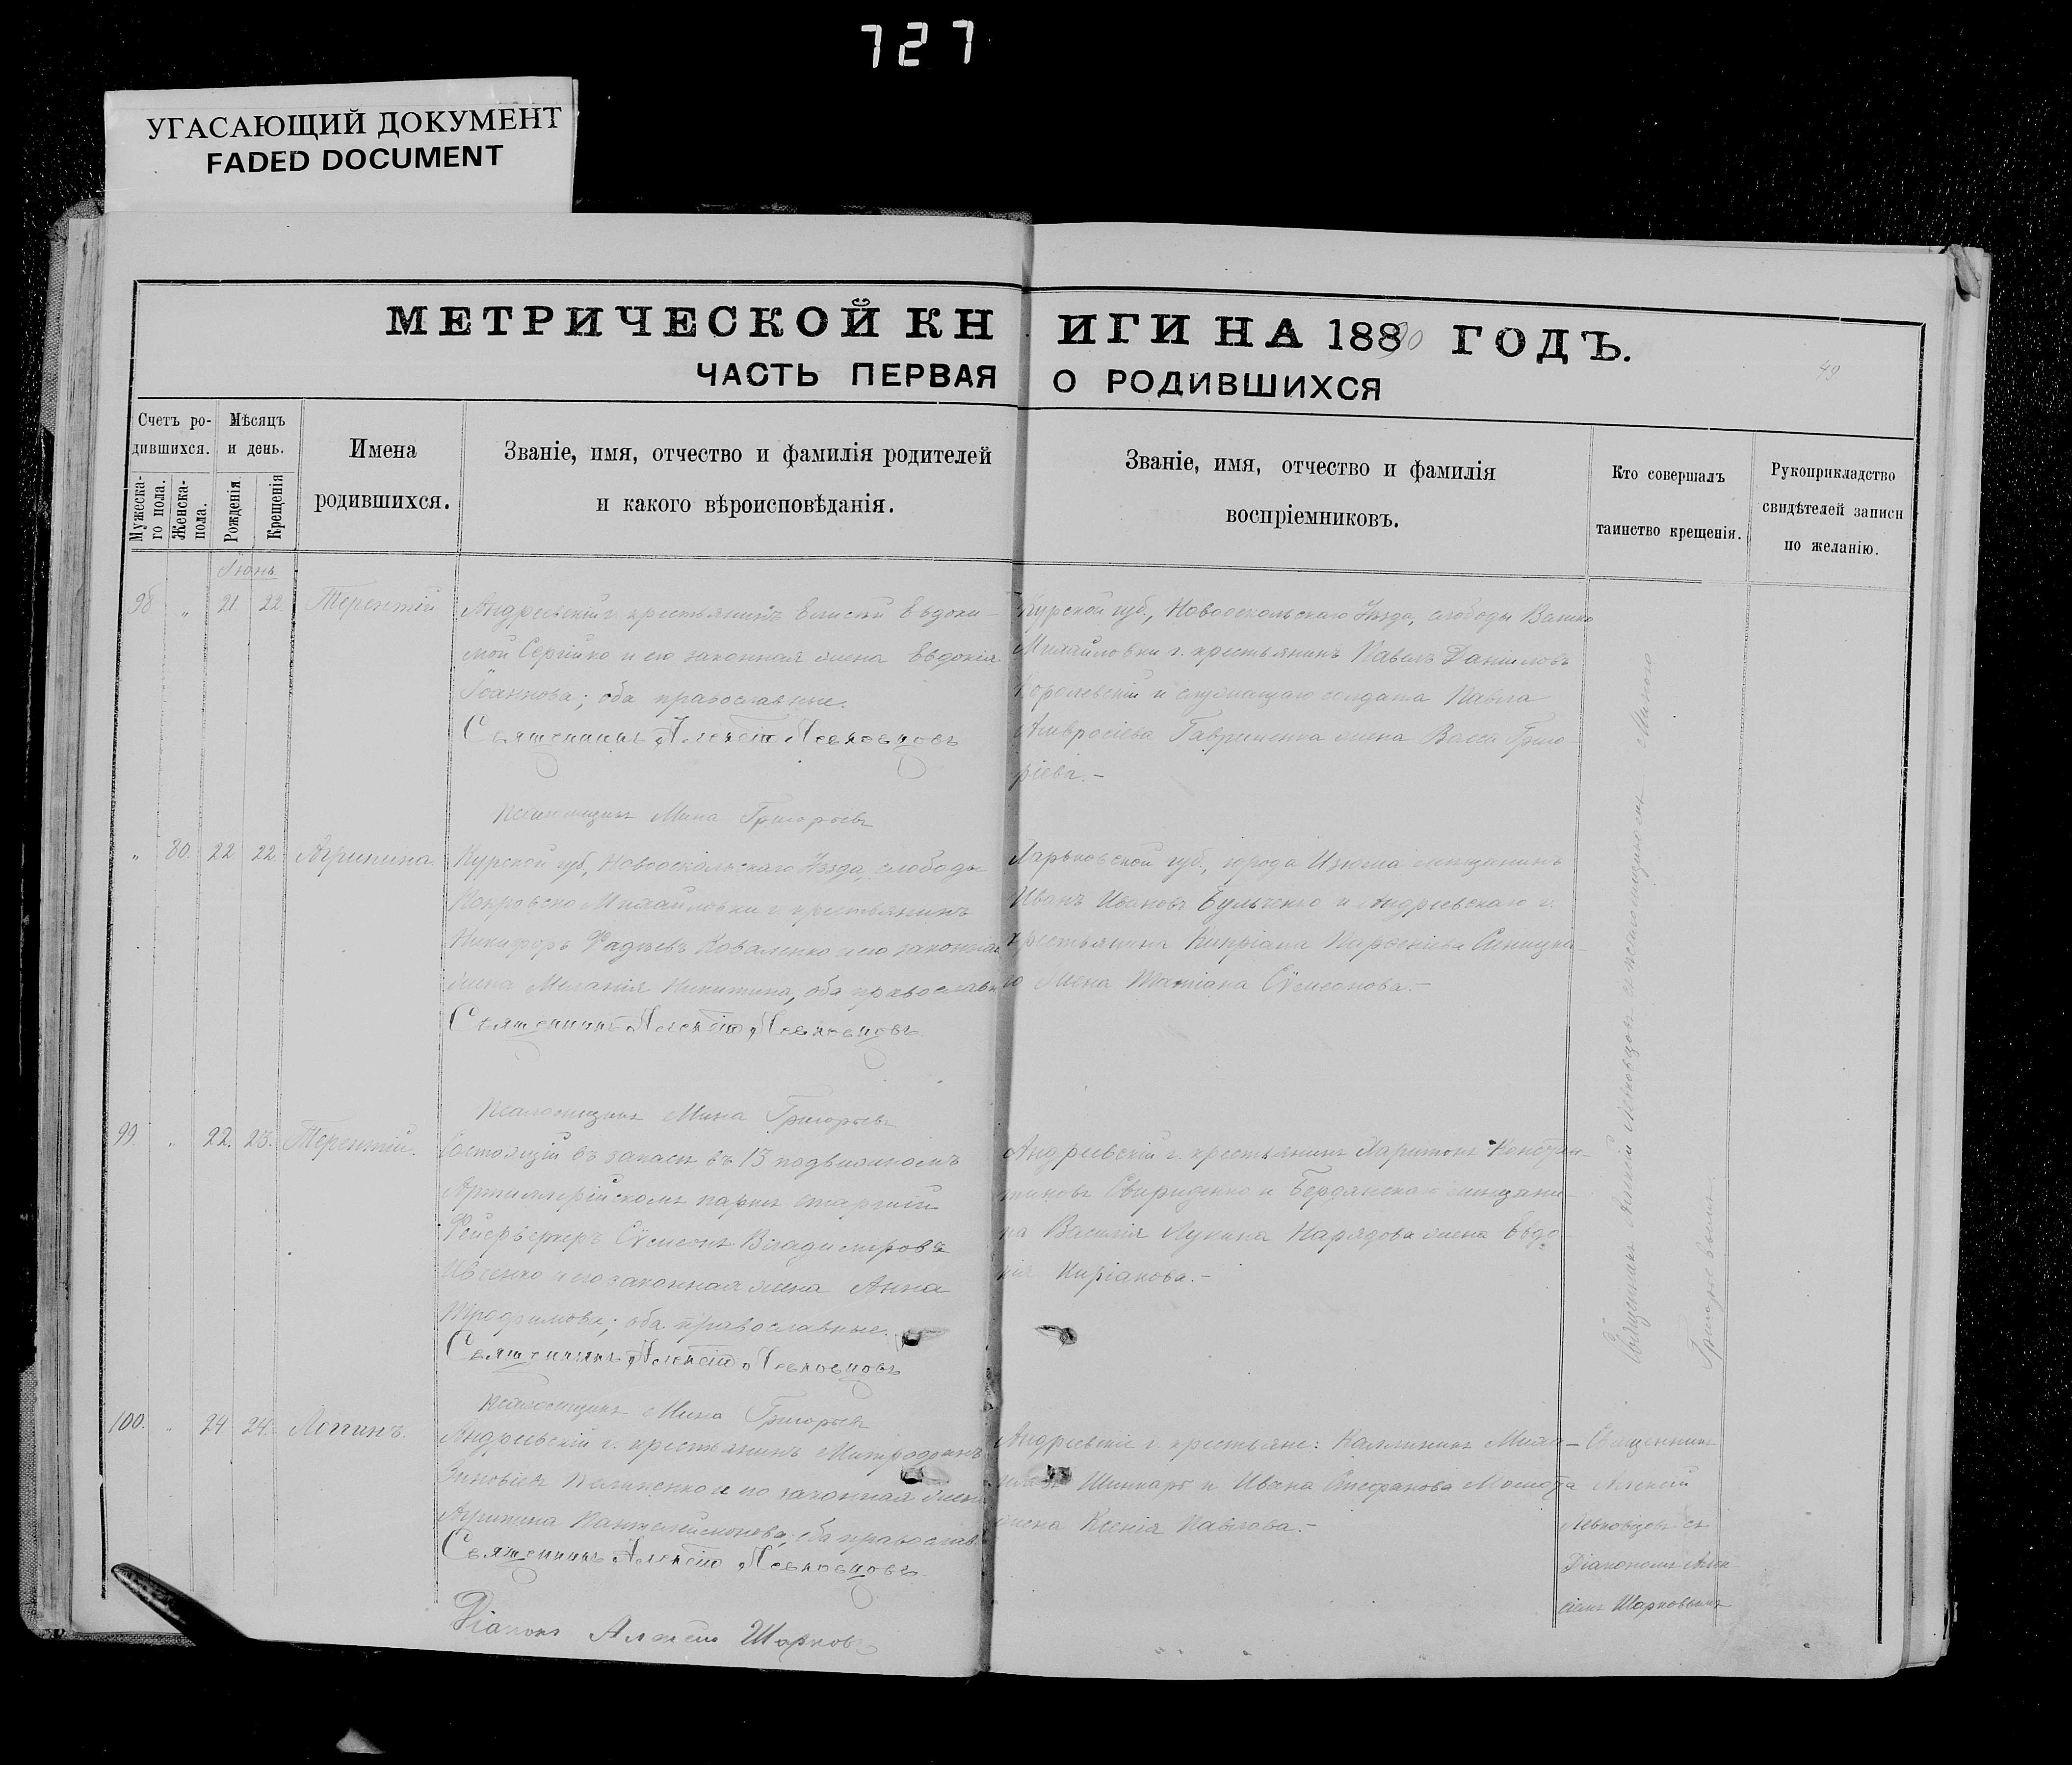 727
УГАСАЮЩИЙ ДОКУМЕНТ
FADED DOCUMENT
МЕТРИЧЕСКОЙ КНИГИ НА 1890 ГОДЪ.
ЧАСТЬ ПЕРВАЯ О РОДИВШИХСЯ
49
Счетъ родившихся.
Мужескаго пола.
Женска- пола.
Мѣсяцъ и день.
Рожденія.
Крещенія
Имена родившихся.
Званіе, имя, отчество и фамилія родителей
и какого вѣроисповѣданія.
Званіе, имя, отчество и фамилія
воспріемниковъ.
Кто совершалъ
таинство крещенія.
Рукоприкладство
свидѣтелей записи
по желанію.
Іюнь
98 „ 21 22 Терентій
Андреевскій г. крестьянинъ Евдоки-
мой Сергійко и его законная жена Евдокія
Іоаннова; оба православные.
Священникъ Алексій Левковцовъ
Псаломщикъ Мина Григорьевъ
Курской губ., Новооскольскаго Уѣзда, слободы Велико
Михайловки г. крестьянинъ Павелъ Даніиловъ
Королевскій и служащаго солдата Павла
Амвросіева Гавриленка жена Васса Григо
ріева.-
„ 80. 22 22 Агрипина
Курской губ., Новооскольскаго Уѣзда, слободы
Покровско Михайловки г. крестьянинъ
Никифоръ Фадѣевъ Коваленко и его законная
жена Меланія Никитина, оба православн
Священникъ Алексій Левковцовъ
Псаломщикъ Мина Григорьевъ
Харьковской губ., города Изюма мещанинъ
Иванъ Ивановъ Бульченко и Андреевскаго г.
крестьянина Кипріана Парѳеніева Синицка-
го жена Татіана Сѵмеонова.-
99 „ 22. 23. Терентій.
Состоящій въ запасѣ въ 13 подвижномъ
Артиллерійскомъ паркѣ старшій
Фейерверкеръ Сѵмеонъ Владиміровъ
Ивченко и его законная жена Анна
Трофимова; оба православные.
Священникъ Алексій Левковцовъ
Псаломщикъ Мина Григорьевъ
Андреевскій г. крестьянинъ Харитонъ Констан-
тиновъ Свириденко и Бердянскаго мещани-
на Василія Лукина Нарядова жена Евдо-
кія Киріакова.-
Священникъ Алексій Левковцовъ съ псаломщикомъ Миною
Григорьевымъ
100. „ 24 24. Логгинъ.
Андреевскій г. крестьянинъ Митрофанъ
Зиновіевъ и его законная жена
Агрипина Пантелеймонова; оба православ.
Священникъ Алексій Левковцовъ
Діаконъ Алексій Шарковъ
Андреевскіе г. крестьяне: Каллиникъ Миха-
иловъ Шинкарь и Ивана Стефанова
жена Ксенія Павлова.-
Священникъ
Алексій
Левковцовъ съ
Діакономъ Алек
сіемъ Шарковымъ